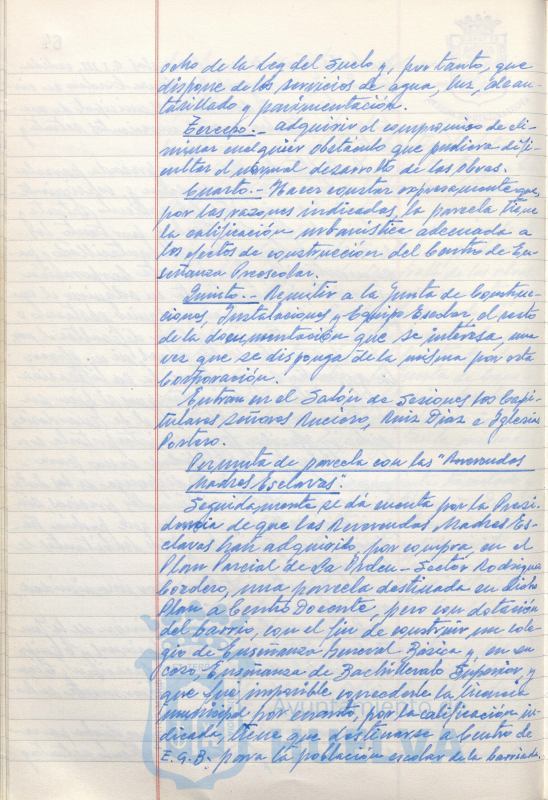 ocho de la Ley del Suelo y, por tanto, que
dispone de los servicios de agua, luz, alcan-
tarillado y pavimentación.
Tercero.- Adquirir el compromiso de eli-
minar cualquier obstáculo que pudiera difi-
cultar el normal desarrollo de las obras.
Cuarto.- Hacer constar expresamente que,
por las razones indicadas, la parcela tiene
la calificación urbanística adecuada a
los efectos de construcción del Centro de En-
señanza Preescolar.
Quinto.- Remitir a la Junta de Construc-
ciones, Instalaciones y Equipo Escolar, el resto
de la documentación que se interesa, una
vez que se disponga de la misma por esta
Corporación.
Entran en el Salón de Sesiones los Capi-
tulares señores Ruciero, Ruiz Díaz e Iglesias
Postero.
Permuta de parcela con las "Reverendas
Madres Esclavas".
Seguidamente se dá cuenta por la Presi-
dencia de que las Reverendas Madres Es-
clavas han adquirido, por compra, en el
Plan Parcial de La Orden - Sector Rodríguez
Cordero, una parcela destinada en dicho
Plan a Centro Docente, pero con dotación
del barrio, con el fin de construir un cole-
gio de Enseñanza General Básica y, en su
caso, Enseñanza de Bachillerato Superior, y
que fue imposible concederle la licencia
municipal por cuanto, por la calificación in-
dicada, tiene que destinarse a Centro de
E.G.B. para la población escolar de la barriada.
Ayuntamiento de
HUELVA